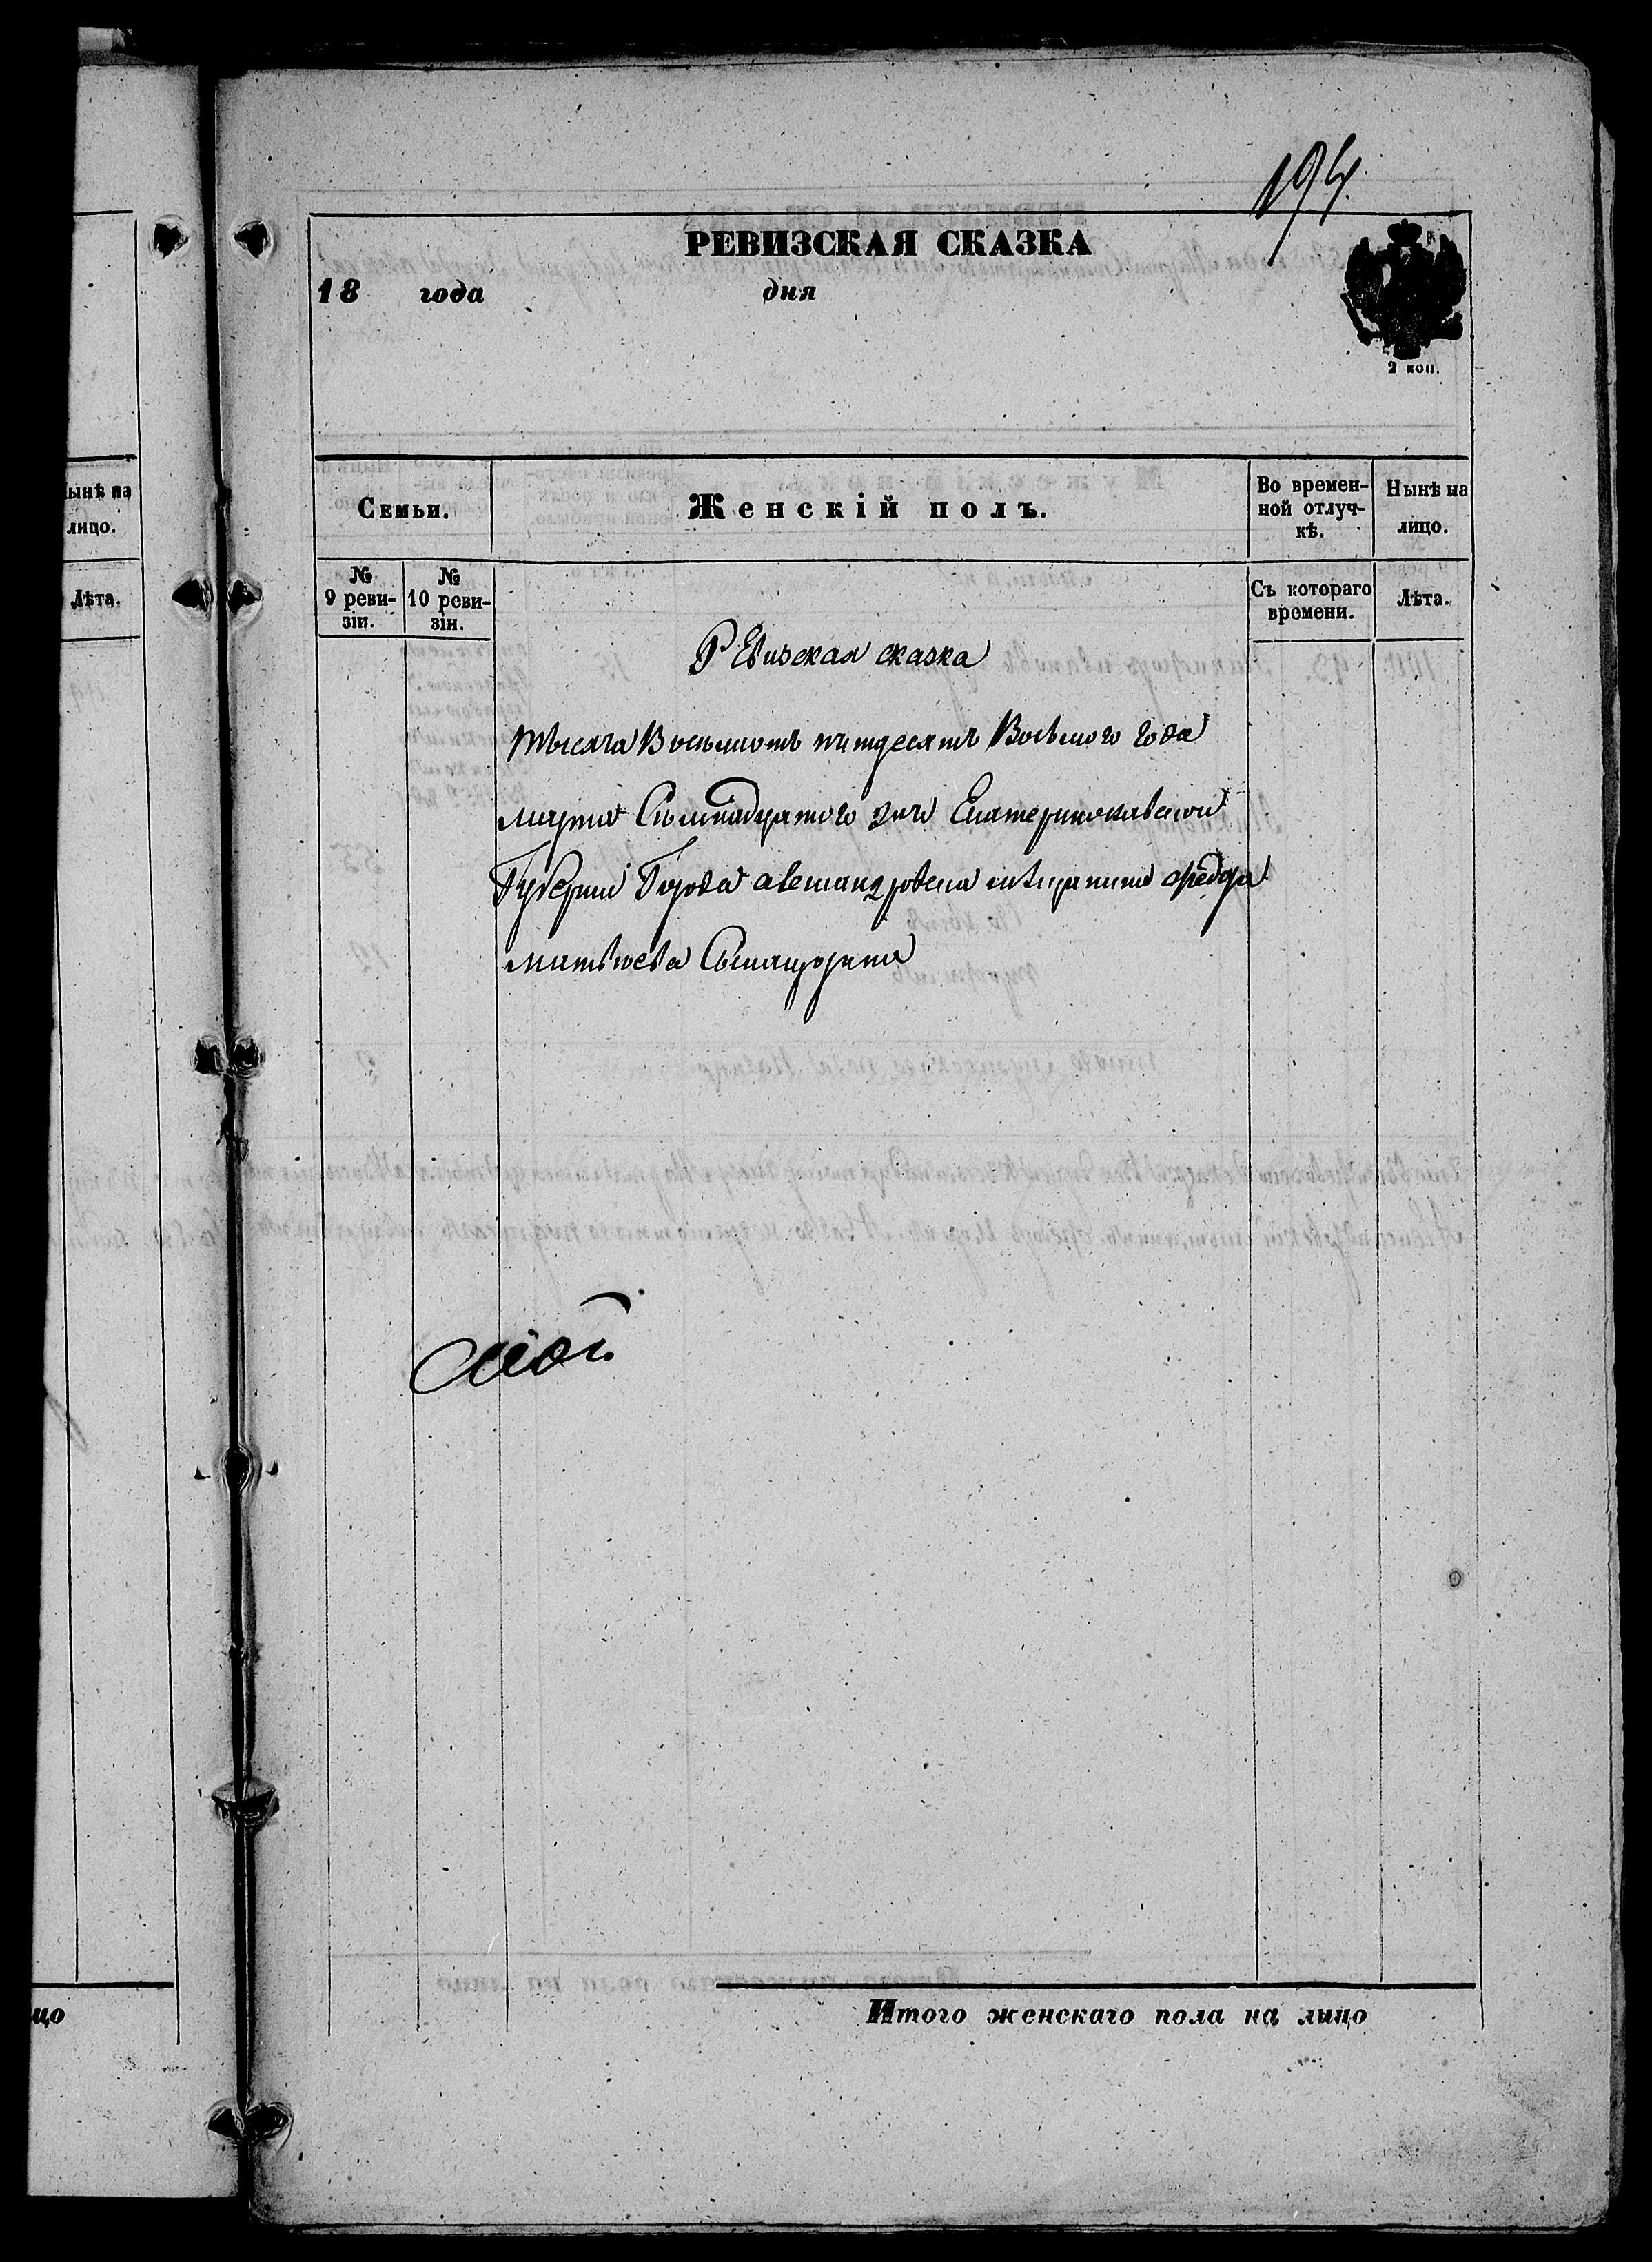 194.
РЕВИЗСКАЯ СКАЗКА
18 года дня
2 коп.
Семьи.
Женскій полъ.
Во времен-
ной отлуч-
кѣ.
Нынѣ на
лицо.
№
9 реви-
зіи.
№
10 реви-
зіи.
Съ котораго
времени.
Лѣта.
РЕвизская сказка
тысяча Восемьсотъ пятдесятъ Восьмого года
марта Семнадцатого дня Екатеринославской
Губерніи Города александровска мѣщанина федора
матвѣева
Итого женскаго пола на лицо
ынѣ на
лицо.
Лѣта.
цо